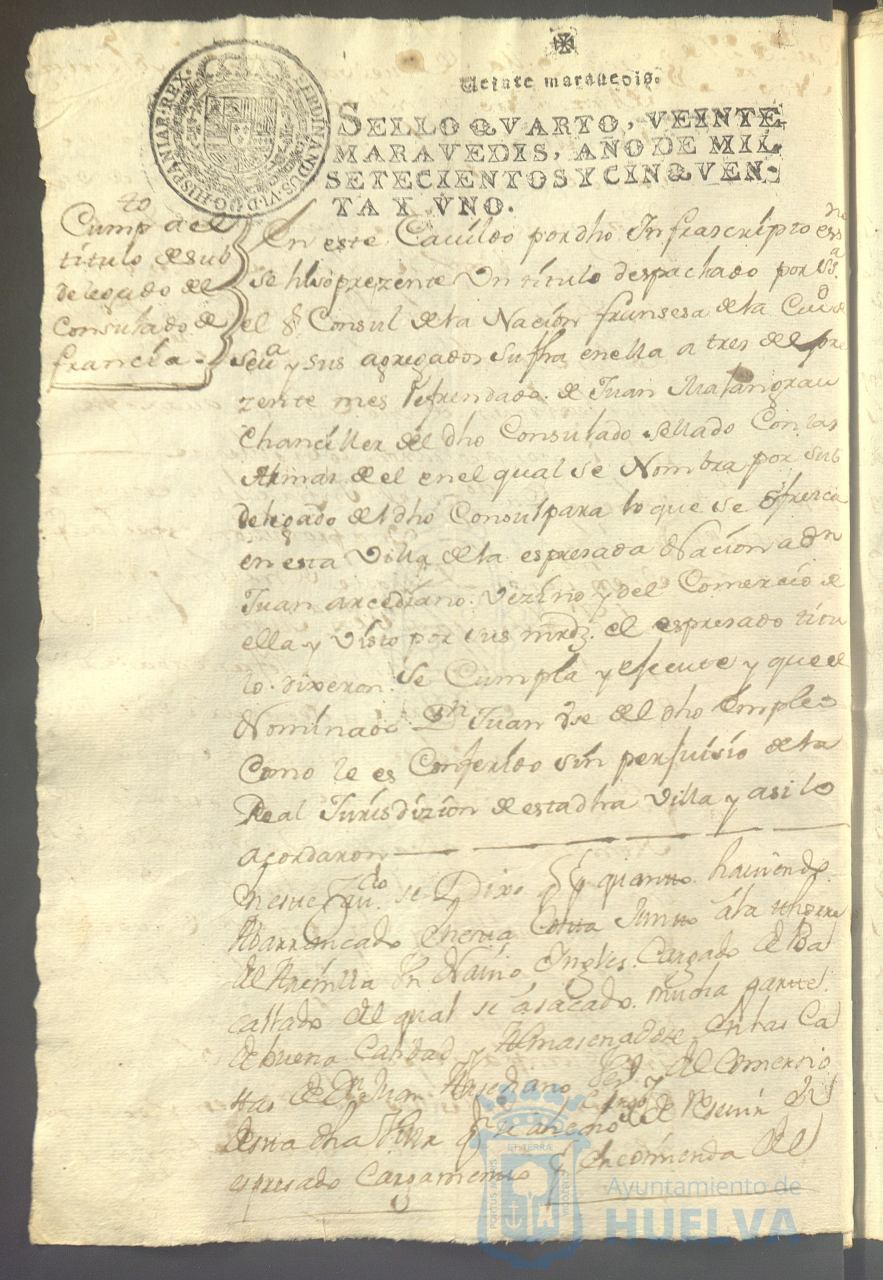 Veinte maravedis.
SELLO QVARTO, VEINTE
MARAVEDIS, AÑO DE MIL
SETECIENTOS Y CINQVEN-
TA Y VNO.
FERDINANDUS·VI·D·G·HISPANIAR·REX·
Cump.to del
título de sub
delegado del
Consulado de
francia.
En este Cavildo por dho Infrascripto essno
se hiso prezente Un título despachado por Sa.
el Sr Consul de la Nación fransesa de la Ciud de
Seva y sus agregados su fha en ella a tres del pre
zente mes refrendado de Juan
Chanciller del dho Consulado sellado Con las
Armas de el en el qual se Nombra por sub
delegado del dho Consul para lo que se ofresca
en esta Villa de la espresada Nación a Dn
Juan arcediano Vezino y del Comercio de
ella y Visto por sus mrdz. el espresado títu
lo dixeron Se Cumpla y efecute y que el
Nominado Dn Juan Use del dho Empleo
Como le es Conferido sin perjuisio de la
Real Jurisdizion de esta dha Villa y asi lo
acordaron
En este se Dixo q quanto haviendo
Abarrancado en esta Costa Junto á la thorre
del Arenilla Un Navio Ingles Cargado de Ba
callado del qual se á sacado mucha parte
de buena Calidad y Almasenadose en las Ca
sas de Dn Juan Arsediano del Comersio
de esta dha Villa
espresado Cargamento y Encomienda del
PORTUS MARIS
ET TERRÆ
CUSTODIA
Ayuntamiento de
HUELVA